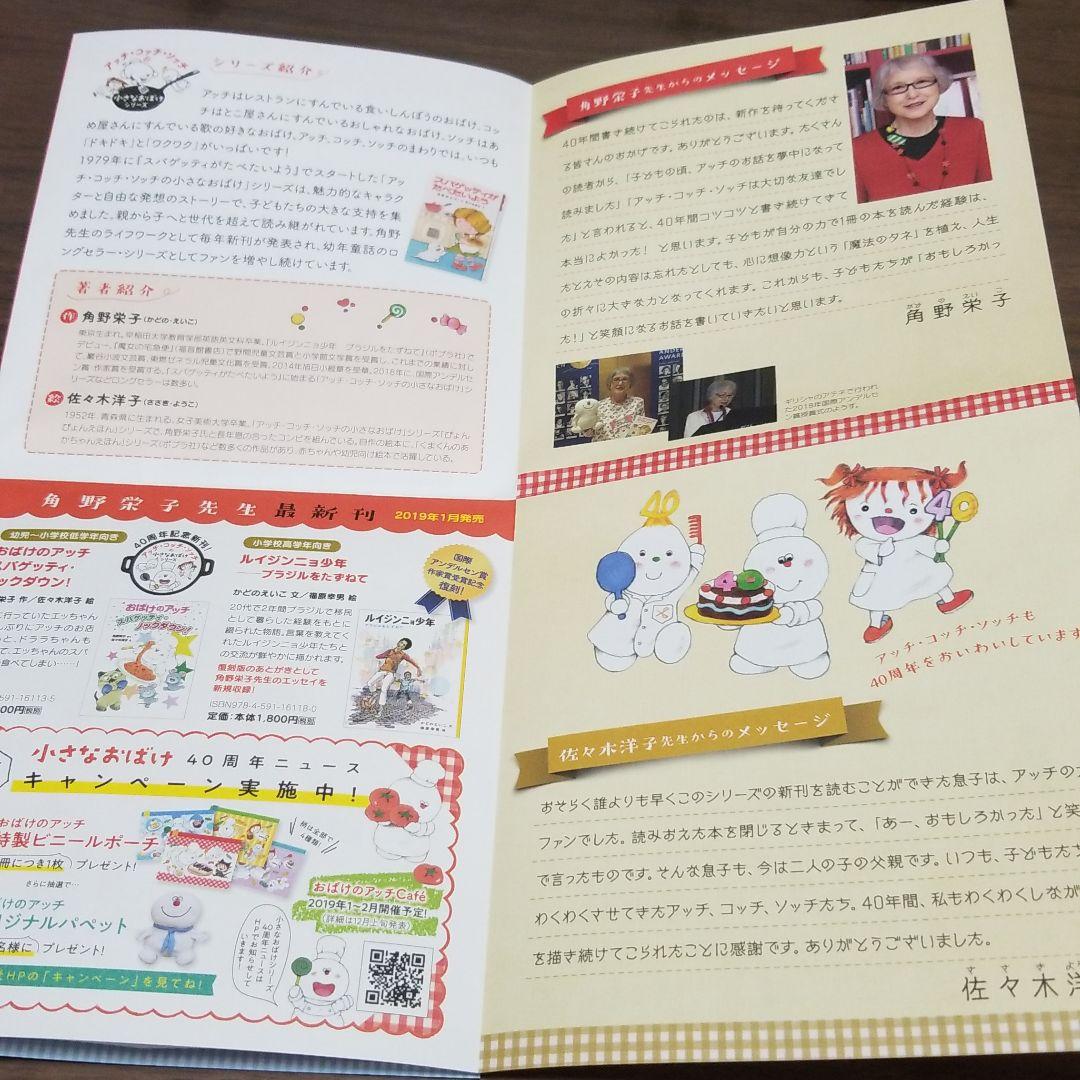 アッチ・コッチ・ソッチの
小さなおばけ
シリーズ
シリーズ紹介
アッチはレストランにすんでいる食いしんぼうのおばけ、コッ
チはとこ屋さんにすんでいるおしゃれなおばけ、ソッチはあ
め屋さんにすんでいる歌の好きなおばけ。アッチ、コッチ、ソッチのまわりでは、いつも
「ドキドキ」と「ワクワク」がいっぱいです!
1979年に『スパゲッティがたべたいよう』でスタートした「アッ
チ・コッチ・ソッチの小さなおばけ」シリーズは、魅力的なキャラク
ターと自由な発想のストーリーで、子どもたちの大きな支持を集
めました。親から子へと世代を超えて読み継がれています。角野
先生のライフワークとして毎年新刊が発表され、幼年童話のロ
ングセラー・シリーズとしてファンを増やし続けています。
スパゲッティが
たべたいよう
著者紹介
作 角野栄子(かどの・えいこ)
東京生まれ。早稲田大学教育学部英語英文科卒業。『ルイジンニョ少年 ブラジルをたずねて』(ポプラ社)で
デビュー。『魔女の宅急便』(福音館書店)で野間児童文芸賞と小学館文学賞を受賞し、これまでの業績に対し
て、巖谷小波文芸賞、東燃ゼネラル児童文化賞を受賞。2014年旭日小綬章を受章。2018年に、国際アンデルセ
ン賞・作家賞を受賞する。『スパゲッティがたべたいよう』に始まる「アッチ・コッチ・ソッチの小さなおばけ」シ
リーズなどロングセラーは数多い。
絵 佐々木洋子(ささき・ようこ)
1952年、青森県に生まれる。女子美術大学卒業。「アッチ・コッチ・ソッチの小さなおばけ」シリーズ(ぴょん
ぴょんえほん)シリーズで、角野栄子氏と長年息の合ったコンビを組んでいる。自作の絵本に、「くまくんのあ
かちゃんえほん」シリーズ(ポプラ社)など数多くの作品があり、赤ちゃんや幼児向け絵本で活躍している。
角野栄子先生 最新刊 2019年1月発売
幼児~小学校低学年向き
おばけのアッチ
スパゲッティ・
ノックダウン!
栄子 作/佐々木洋子 絵
40周年記念新刊!
アッチ・コッチ・ソッチの
小さなおばけ
シリーズ
おばけのアッチ
スパゲッティ・ノックダウン!
小学校高学年向き
ルイジンニョ少年
──ブラジルをたずねて
かどのえいこ 文/福原幸男 絵
20代で2年間ブラジルで移民
として暮らした経験をもとに
綴られた物語。言葉を教えてく
れたルイジンニョ少年たちと
の交流が鮮やかに描かれます。
復刻版のあとがきとして
角野栄子先生のエッセイを
新規収録!
ISBN978-4-591-16118-0
定価:本体1,800円(税別)
国際
アンデルセン賞
作家賞受賞記念
復刻!
ルイジンニョ少年
小さなおばけ 40周年ニュース
キャンペーン実施中!
おばけのアッチ
特製ビニールポーチ
冊につき1枚 プレゼント!
柄は全部で
4種類!
さらに抽選で…
ばけのアッチ
リジナルパペット
名様に プレゼント!
HPの「キャンペーン」を見てね!
おばけのアッチCafé
2019年1~2月開催予定!
(詳細は12月上旬発表)
小さなおばけシリーズ
40周年ニュースは
HPでお知らせして
いきます!
角野栄子先生からのメッセージ
40年間書き続けてこられたのは、新作を待ってくださ
る皆さんのおかげです。ありがとうございます。たくさん
の読者から、「子どもの頃、アッチのお話を夢中になって
読みました」「アッチ・コッチ・ソッチは大切な友達でし
た」と言われると、40年間コツコツと書き続けてきて
本当によかった! と思います。子どもが自分の力で1冊の本を読んだ経験は、
たとえその内容は忘れたとしても、心に想像力という「魔法のタネ」を植え、人生
の折々に大きな力となってくれます。これからも、子どもたちが「おもしろかっ
た!」と笑顔になるお話を書いていきたいと思います。
角野栄子
かどのえいこ
ギリシャのアテネで行われ
た2018年国際アンデルセ
ン賞授賞式のようす。
40
40
40
アッチ・コッチ・ソッチも
40周年をおいわいしています
佐々木洋子先生からのメッセージ
おそらく誰よりも早くこのシリーズの新刊を読むことができた息子は、アッチの大
ファンでした。読みおえた本を閉じるときまって、「あー、おもしろかった」と笑
で言ったものです。そんな息子も、今は二人の子の父親です。いつも、子どもたち
わくわくさせてきたアッチ、コッチ、ソッチたち。40年間、私もわくわくしなが
を描き続けてこられたことに感謝です。ありがとうございました。
佐々木洋